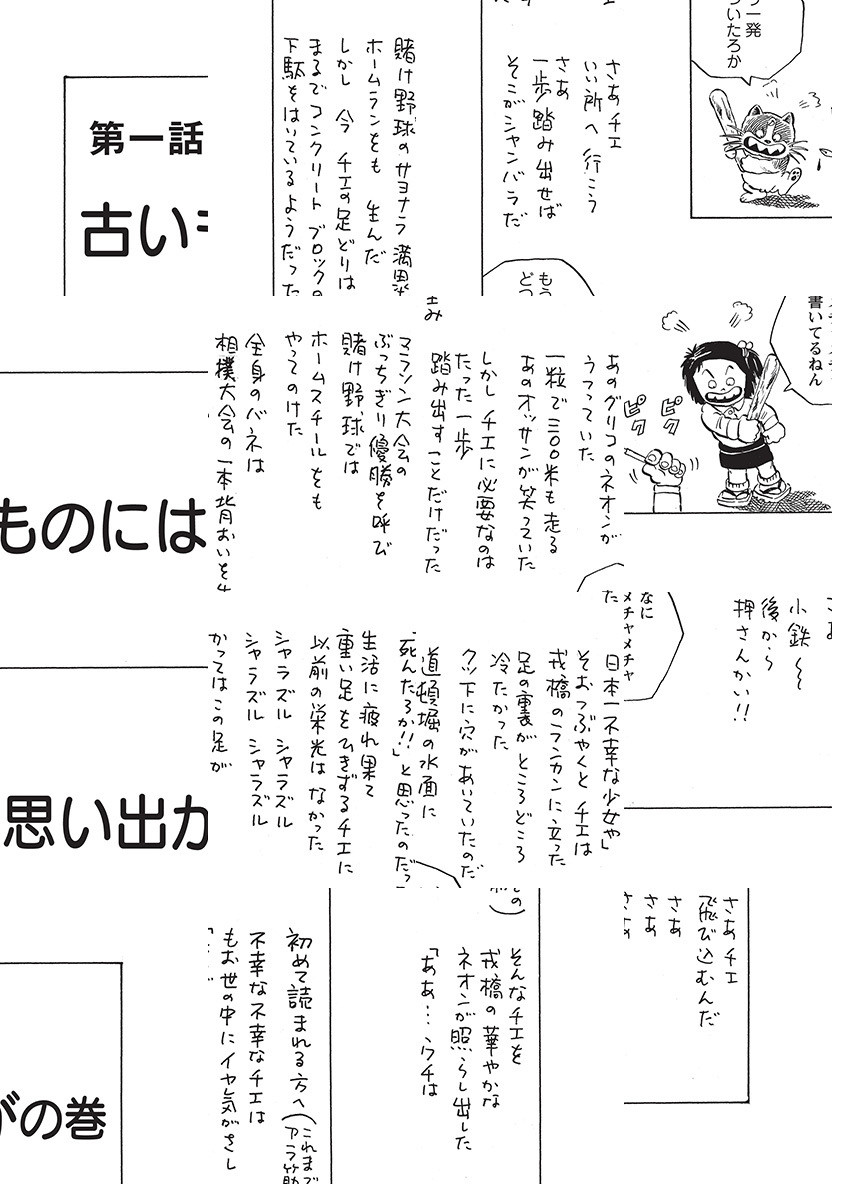 一発
いたろか
さあチエ
いい所へ行こう
さあ
一歩踏み出せば
そこがシャンバラだ
もう
どつ
賭け野球のサヨナラ満塁
ホームランをも 生んだ
しかし 今 チエの足どりは
まるでコンクリートブロックの
下駄をはいているようだった
第一話
古い
書いてるねん
ピク
ピク
あのグリコのネオンが
うつっていた
一粒で三〇〇米も走る
あのオッサンが笑っていた
しかしチエに必要なのは
たった一歩
踏み出すことだけだった
マラソン大会の
ぶっちぎり優勝を呼び
賭け野球では
ホームスチールをも
やってのけた
全身のバネは
相撲大会の一本背おい
ものには
小鉄〜
後から
押さんかい!!
なに
メチャメチャ
た
日本一不幸な少女や」
そおつぶやくとチエは
戎橋のランカンに立った
足の裏がところどころ
冷たかった
クツ下に穴があいていたのだ
道頓堀の水面に
死んだろか!!」と思ったのだっ
生活に疲れ果て
重い足をひきずるチエに
以前の栄光はなかった
シャラズル シャラズル
シャラズル シャラズル
かつてはこの足が
思い出が
さあチエ
飛び込むんだ
さあ
さあ
さあ
そんなチエを
戎橋の華やかな
ネオンが照らし出した
「ああ…ウチは
初めて読まれる方へ(これまで
アラ筋
不幸な不幸なチエは
もお世の中にイヤ気がさし
がの巻